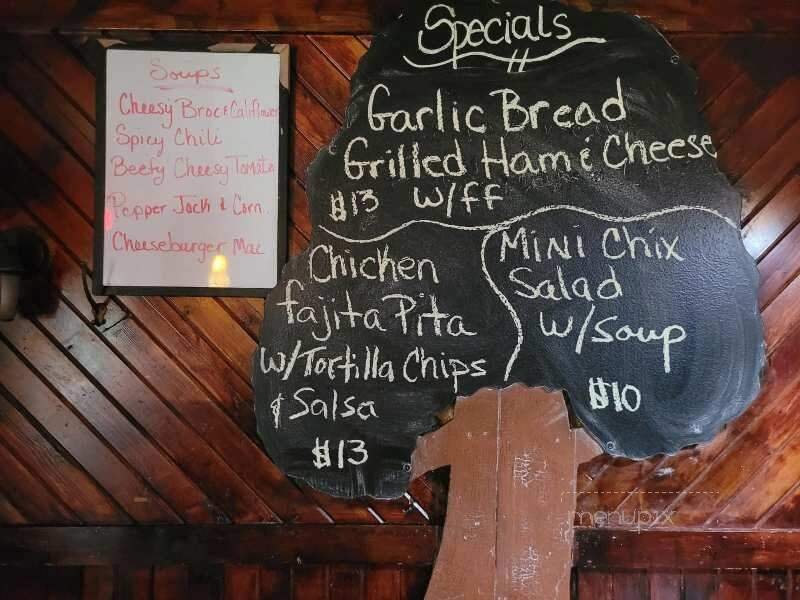 Soups
Cheesy Broc & Califlower
Spicy Chili
Beefy Cheesy Tomato
Pepper Jack & Corn
Cheeseburger Mac
Specials
Garlic Bread
Grilled Ham & Cheese
$13 w/ff
Chicken
fajita Pita
w/Tortilla Chips
& Salsa
$13
Mini Chix
Salad
w/Soup
$10
menupix